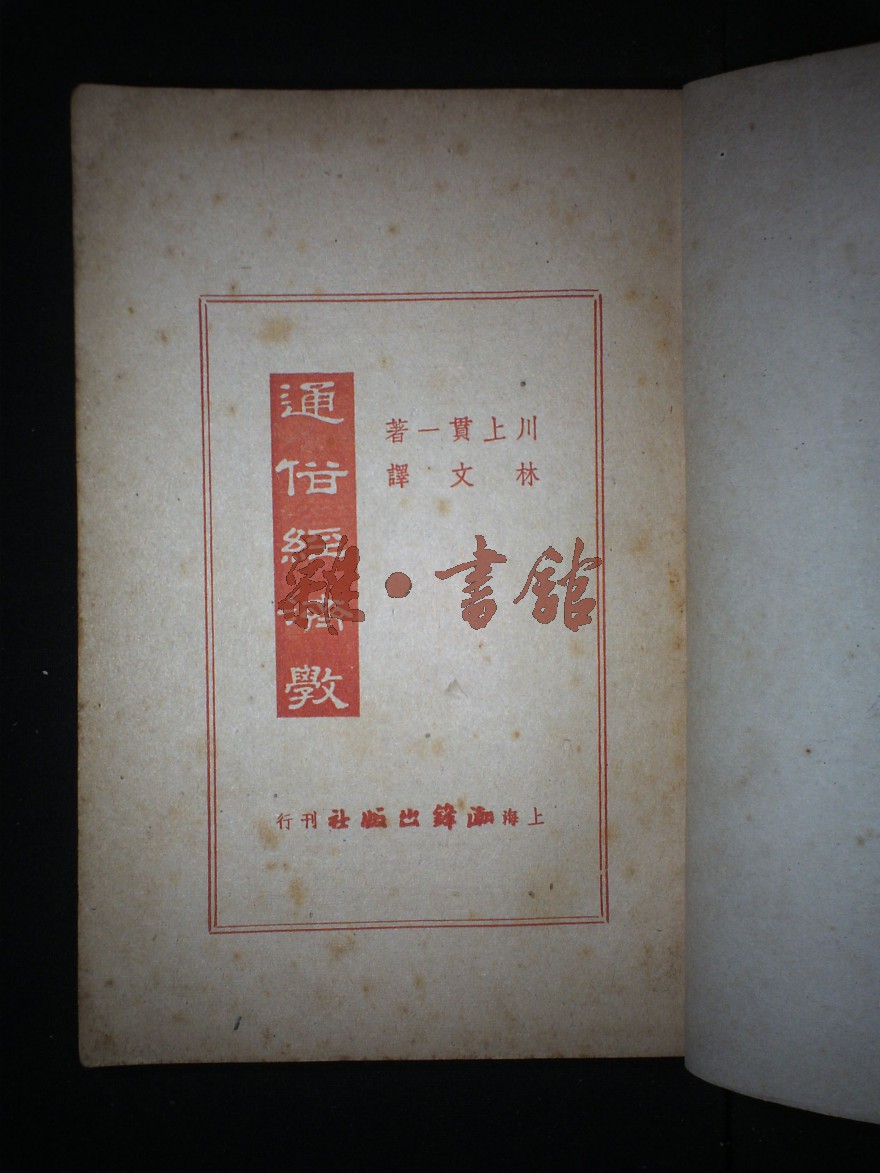 川上貫一著
林文譯
通俗經濟學
雜·書館
上海潮鋒出版社刊行